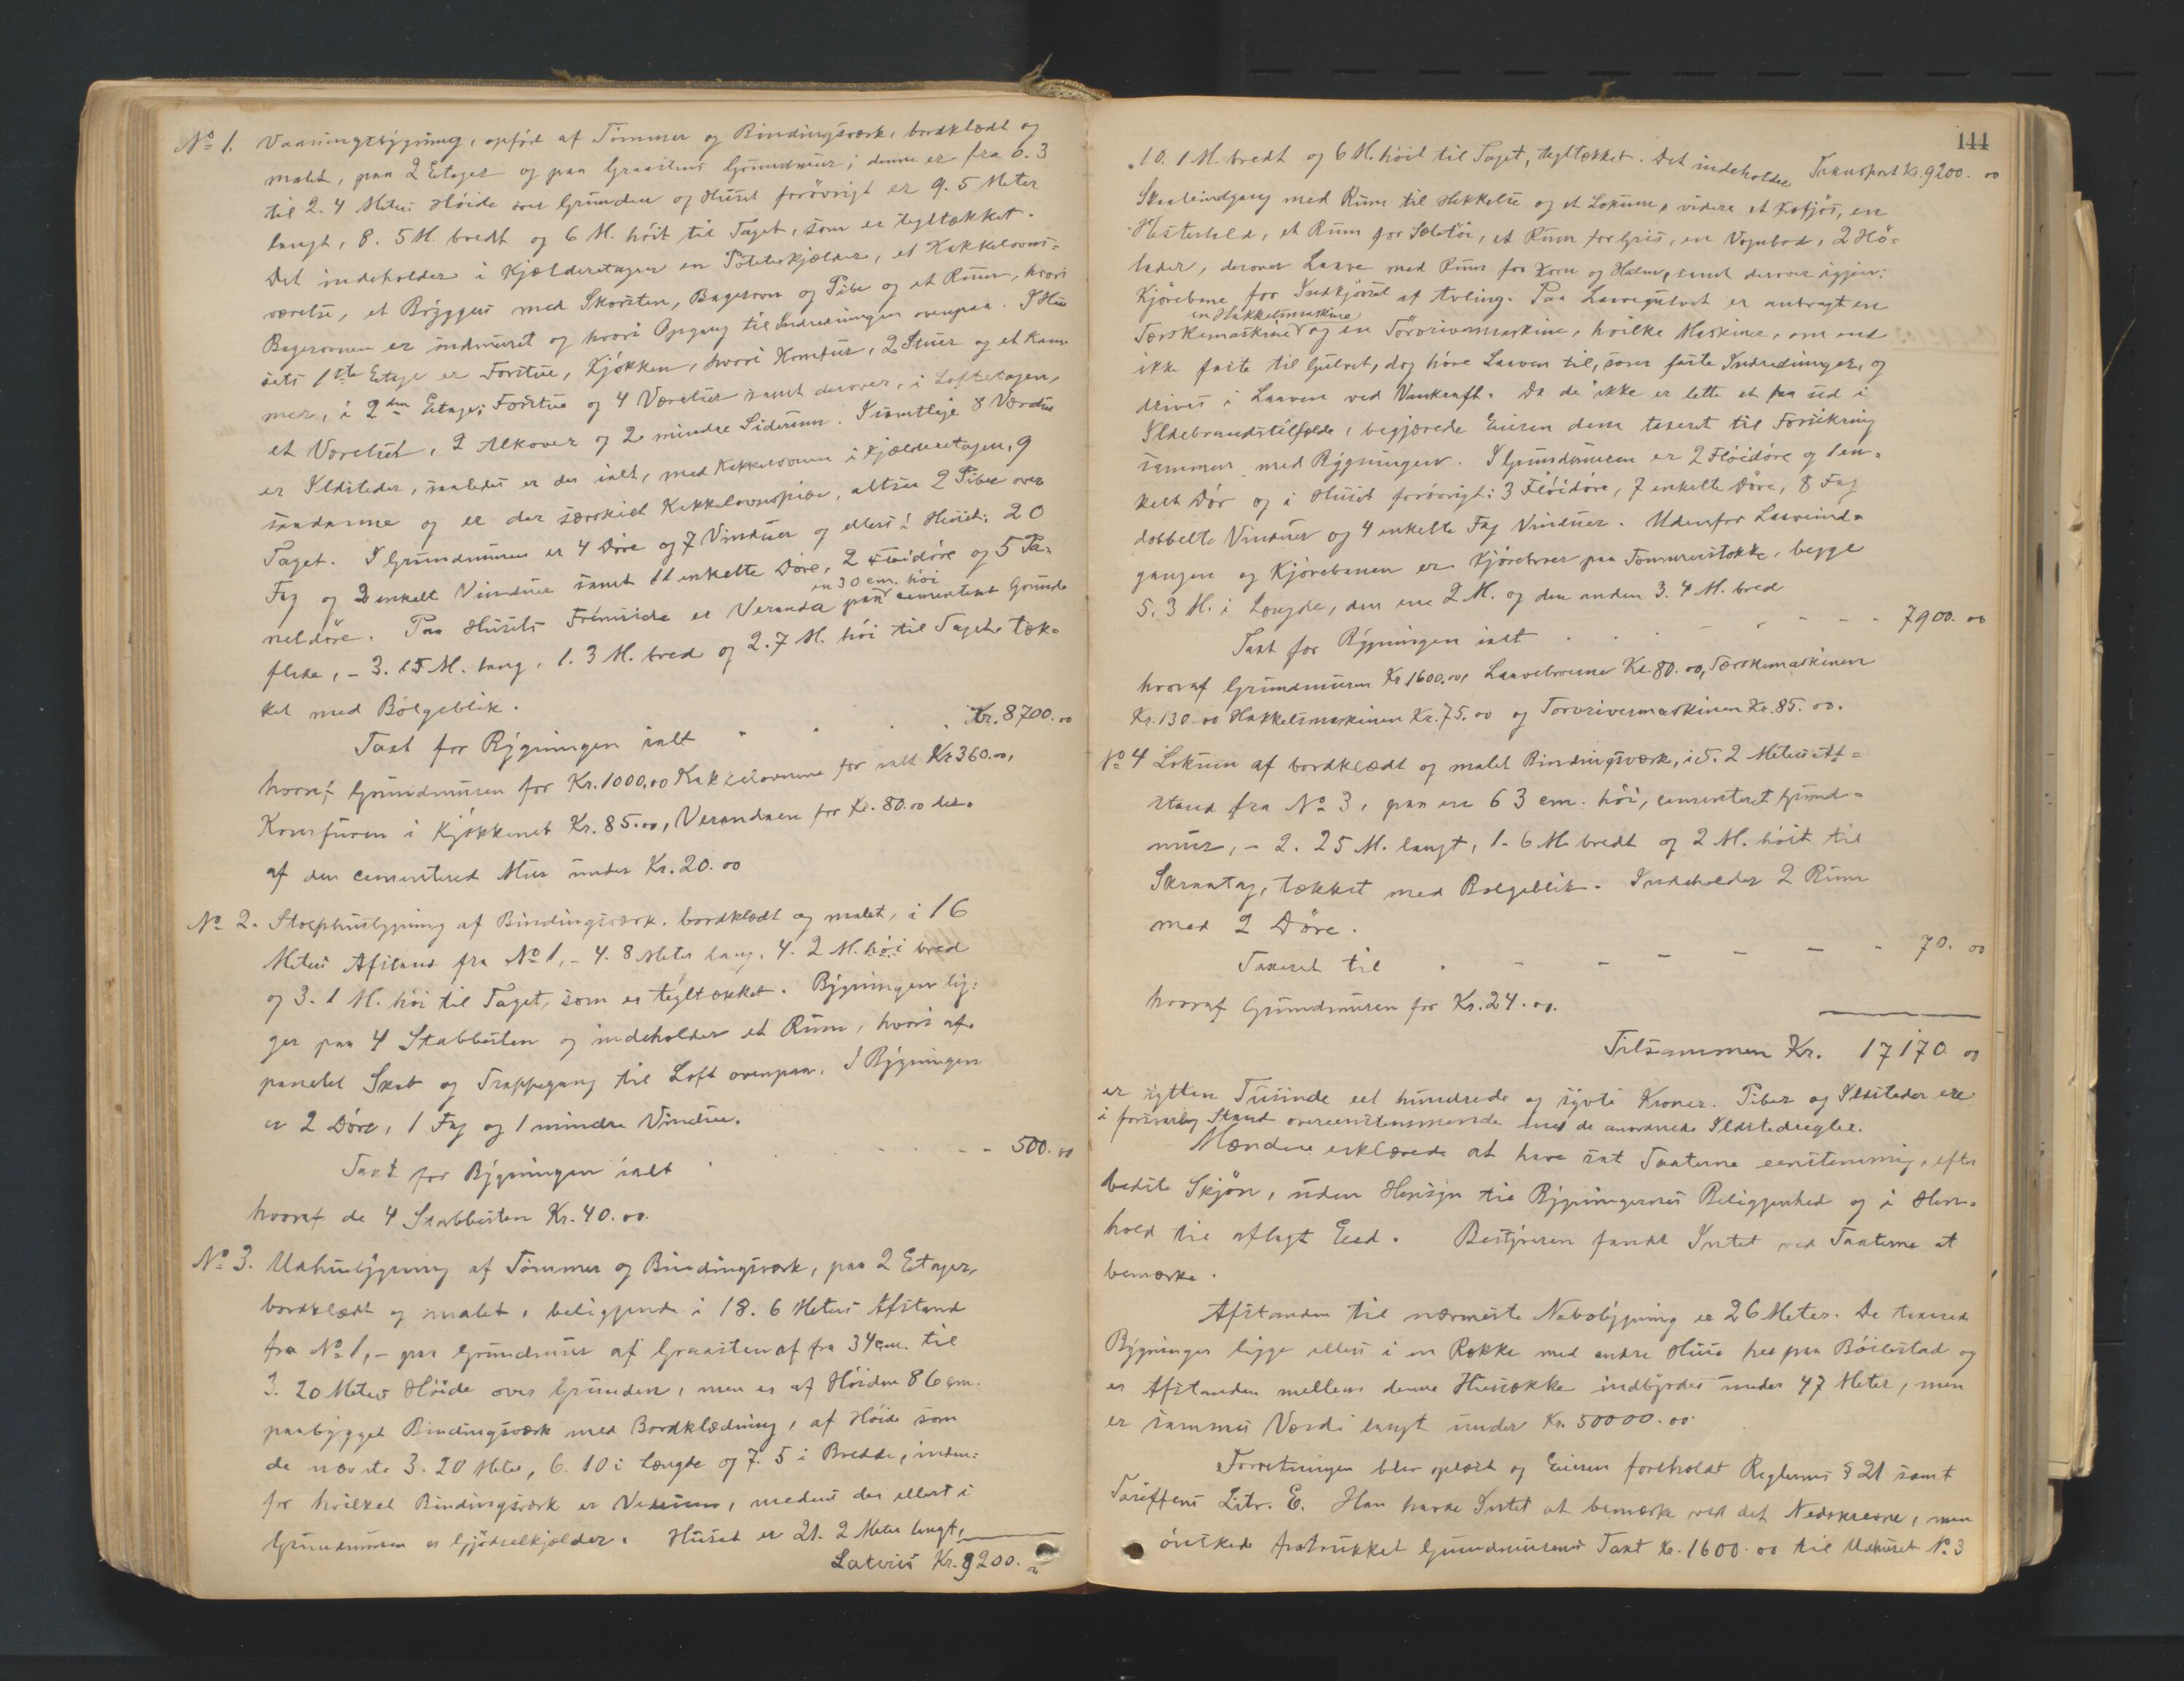 No 1. Vaaningsbygning, opført af Tømmer og Bindingsværk, bordklædt og
malet, paa 2 Etager og paa Graastens Grundmur; denne er fra 0.3
til 2.4 Meters Høide over Grunden og Huset forøvrigt er 9.5 Meter
langt, 8.5 M. bredt og 6 M. høit til Taget, som er tegltækket.
Det indeholder i Kjælderetagen en Potetkjælder, et Kakkelovns-
værelse, et Bryggus med Skorsten, Bagerovn og Pibe og et Rum, hvori
Bagerovnen er indmuret og hvori Opgang til Indredningen ovenpaa. I Hu-
sets 1ste Etage er Forstue, Kjøkken, hvori Komfur, 2 Stuer og et Kam-
mer, i 2den Etage: Forstue og 4 Værelser samt derover, i Loftetagen,
et Værelse, 2 Alkover og 2 mindre Siderum. I samtlige 8 Værelser
er Ildsteder, saaledes er der ialt, med Kakkelovnen i Kjælderetagen, 9
saadanne og er der særskilt Kakkelovnspibe, altsaa 2 Piber over
Taget. I Grundmuren er 4 Døre og 7 Vinduer og ellers i Huset: 20
Fag og 2 enkelt Vinduer samt 11 enkelte Døre, 2 Fløidøre og 5 Pa-
neldøre. Paa Husets Fremside er Veranda paa en 30 cm. høi cementeret Grund-
flade, - 3.15 M. lang, 1.3 M. bred og 2.7 M. høi til Taget, tæk-
ket med Bølgeblik.
Taxt for Bygningen ialt . . . Kr. 8700.00
hvoraf Grundmuren for Kr. 1000,00 Kakkelovnene for ialt Kr 360.00,
Komfuren i Kjøkkenet Kr. 85.00, Verandaen for Kr. 80.00 der-
af den cementered Mur under Kr. 20.00
No 2. Stolphusbygning af Bindingsværk, bordklædt og malet, i 16
Meters Afstand fra No 1, - 4.8 Meter lang, 4.2 M. høi bred
og 3.1 M. høi til Taget, som er tegltækket. Bygningen lig-
ger paa 4 Stabbesten og indeholder et Rum, hvori af-
panelet Skab og Trappegang til Loft ovenpaa. I Bygningen
er 2 Døre, 1 Fag og 1 mindre Vindue.
Taxt for Bygningen ialt . . . - - 500.00
hvoraf de 4 Stabbesten Kr. 40.00.
No 3. Udhusbygning af Tømmer og Bindingsværk, paa 2 Etager,
bordklædt og malet, beliggende i 18.6 Meters Afstand
fra No 1, - paa Grundmur af Graasten af fra 34 cm. til
3.20 Meters Høide over Grunden, men er af Høiden 86 cm.
paabygget Bindingsværk med Bordklædning, af Høide som
de nævnte 3.20 Meter, 6.10 i Længde og 7.5 i Bredde, inden-
for hvilket Bindingsværk er Vedrum, medens der ellers i
Grundmuren er Gjødselkjelder. Huset er 21.2 Meter langt,
Lateris Kr. 9200.00
144
10.1 M. bredt og 6 M. høit til Taget, tegltækket. Det indeholder Transport Kr. 9200.00
Skaaleindgang med Rum til Hakkelse og et Lokum, videre et Kofjøs, en
Hestestald, et Rum for Seletøi, et Rum for Gris, en Vognbod, 2 Hø-
lader, derover Laave med Rum for Korn og Halm, samt derover igjen:
Kjørebane for Indkjørsel af Avling. Paa Laavegulvet er anbragt en
Tærskemaskine en Hakkelsmaskine og en Tørvrivermaskine, hvilke Maskiner, om end
ikke faste til Gulvet, dog høre Laaven til, som faste Indredninger, og
drives i Laaven ved Vankraft. Da de ikke er lette at faa ud i
Ildebrandstilfælde, begjærede Eieren dem taxeret til Forsikring
sammen med Bygningen. I Grundmuren er 2 Fløidøre og 1 en-
kelt Dør og i Huset forøvrigt: 3 Fløidøre, 7 enkelte Døre, 8 Fag
dobbelte Vinduer og 4 enkelte Fag Vinduer. Udenfor Laaveind-
gangen og Kjørebanen er Kjørebroer paa Tømmerstokke, begge
5.3 M. i Længde, den ene 2 M. og den anden 3.4 M. bred
Taxt for Bygningen ialt . . . - - - 7900.00
hvoraf Grundmuren Kr 1600.00, Laavebroerne Kr. 80.00, Tærskemaskinen
Kr. 130.00 Hakkelsmaskinen Kr. 75.00 og Torvrivermaskinen Kr. 85.00.
No 4 Lokum af bordklædt og malet Bindingsværk, i 5.2 Meters Af-
stand fra No 3, paa en 63 cm. høi, cementeret Grund-
mur, - 2.25 M. langt, 1.6 M. bredt og 2 M. høit til
Skraatag, tækket med Bølgeblik. Indeholder 2 Rum
med 2 Døre.
Taxeret til . - - - - - 70.00
hvoraf Grundmuren for Kr. 24.00.
Tilsammen Kr. 17170.00
er sytten Tusinde eet hundrede og sytti Kroner. Piber og Ildsteder ere
i forsvarlig Stand overensstemmende med de anordnede Ildstedregler.
Mændene erklærede at have sat Taxterne eenstemmig, efter
bedste Skjøn, uden Hensyn til Bygningernes Beliggenhed og i Hen-
hold til aflagt Eed. Bestyreren fandt Intet ved Taxterne at
bemærke.
Afstanden til nærmeste Nabobygning er 26 Meter. De taxerede
Bygninger ligge ellers i en Række med andre Huse her paa Bøilestad og
er Afstanden mellem denne Husrække indbyrdes under 47 Meter, men
er sammes Værdi langt under Kr. 50000.00
Forretningen blev oplæst og Eieren foreholdt Reglernes § 21 samt
Tariffens Litr. E. Han havde Intet at bemærke ved det Nedskrevne, men
ønskede fratrukket Grundmurens Taxt Kr. 1600.00 til Udhuset No 3